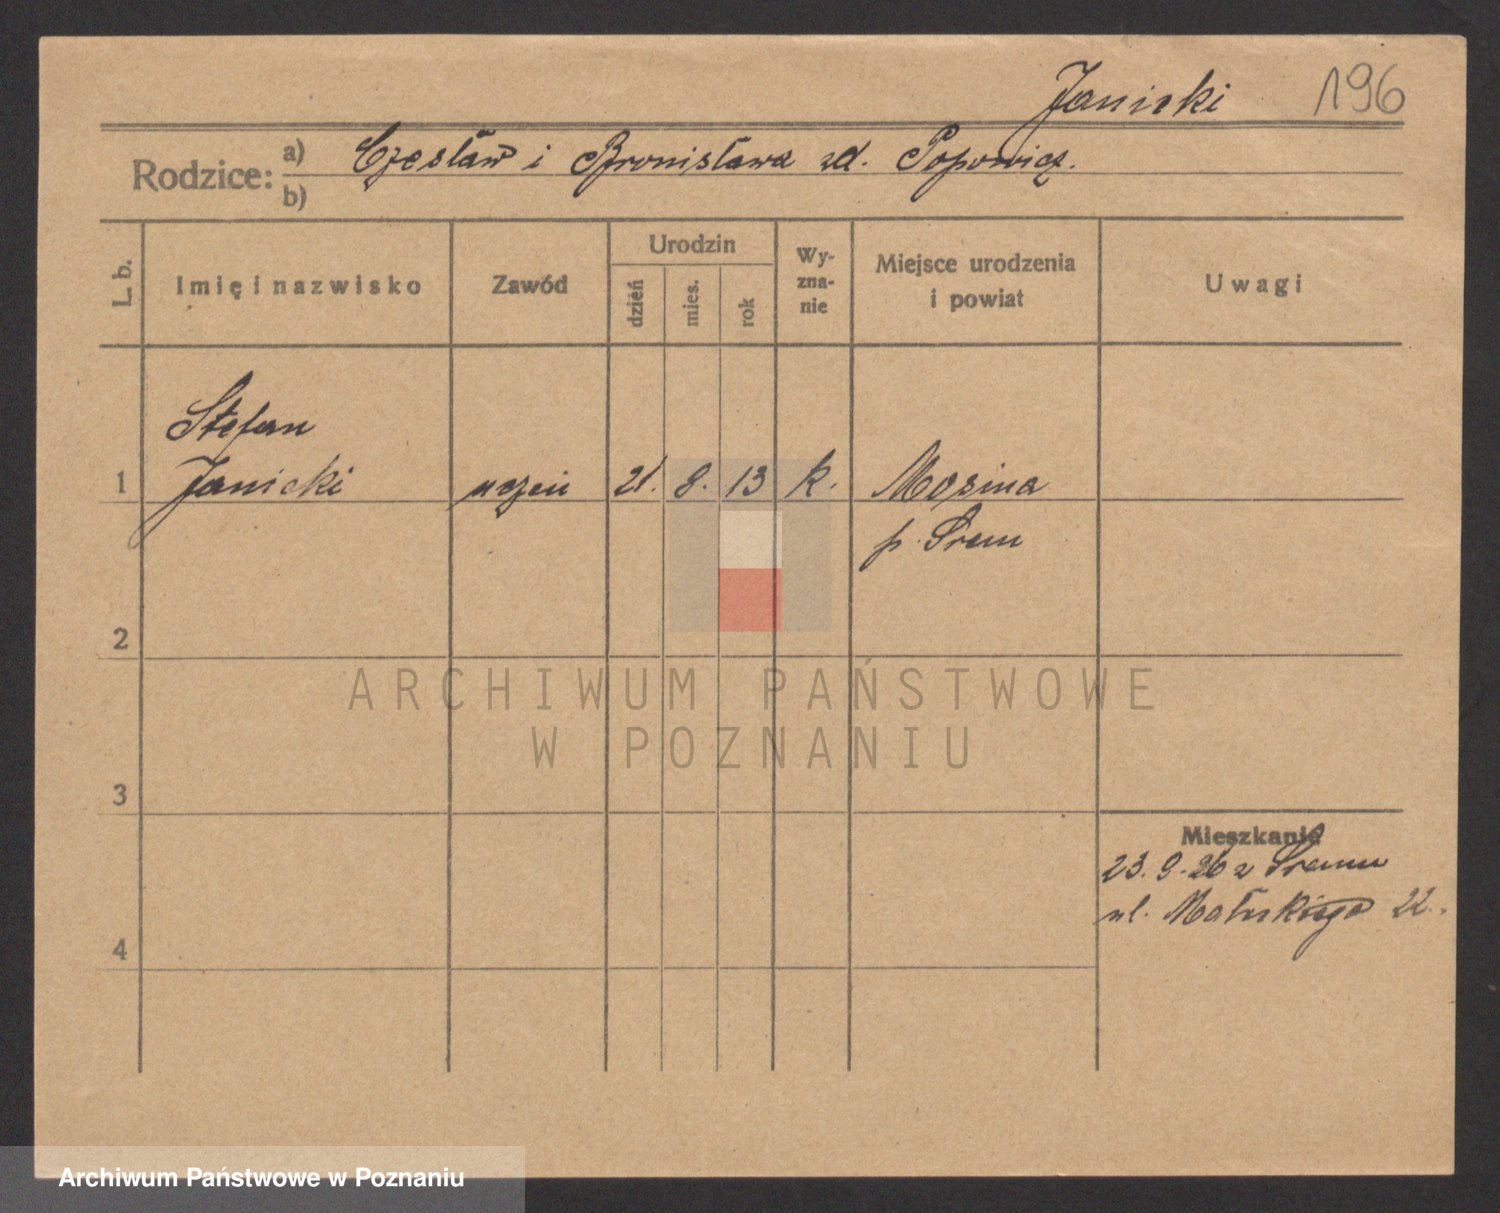 Janicki 196
Rodzice: a) Czesław i Bronisława zd. Popowicz.
b)
L. b. Imię i nazwisko Zawód Urodzin dzień mies. rok Wy-zna-nie Miejsce urodzenia i powiat Uwagi
Stefan
1 Janicki uczeń 21. 8. 13 k. Mosina
p. Śrem
2
ARCHIWUM PAŃSTWOWE
W POZNANIU
3
Mieszkanie
23. 9. 26 z Śremu
ul. 22.
4
Archiwum Państwowe w Poznaniu